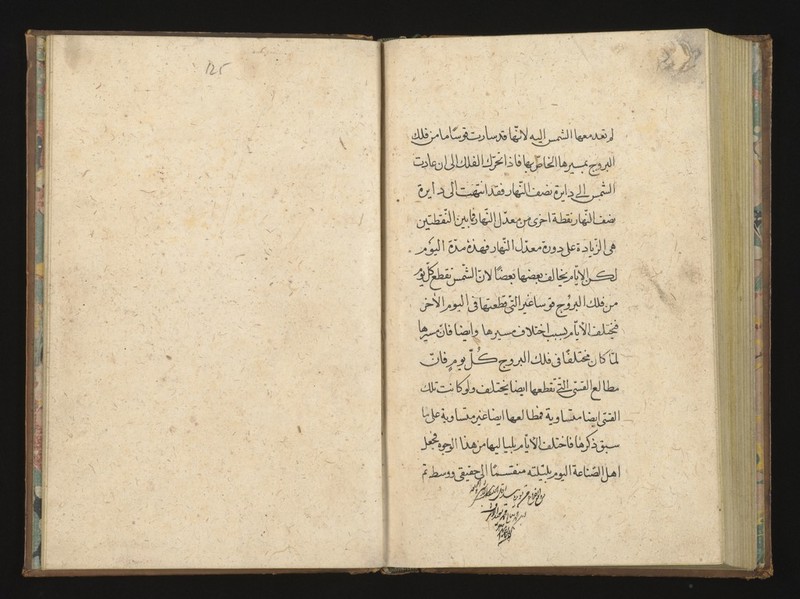 125
لم تعد معها الشمس اليه لانّها قد سارت قوسًا ما من فلك
البروج بمسيرها الخاصّ بها فاذا تحرّك الفلك الى ان عادت
الشمس الى دايرة نصف النّهار فقد انتهت الى دايرة
نصف النّهار نقطة اخرى من معدّل النّهار فما بين النقطتين
هى الزيادة على دورة معدّل النّهار فهذه مدّة اليوم
لكن الايّام يخالف بعضها بعضًا لانّ الشّمس تقطع كلّ يوم
من فلك البروج قوسا غير التى قطعتها فى اليوم الآخر
فيختلف الايّام بسبب اختلاف مسيرها وايضا فانّ مسيرها
لمّا كان مختلفًا فى فلك البروج كلّ يوم فانّ
مطالع القسىّ الّتى تقطعها ايضا يختلف ولو كانت تلك
القسى ايضا متساوية فمطالعها ايضا غير متساوية على ما
سبق ذكرها فاختلف الايّام بلياليها من هذا الوجوه فجعل
اهل الصّناعة اليوم بليلته منقسمًا الى حقيقى ووسط تم